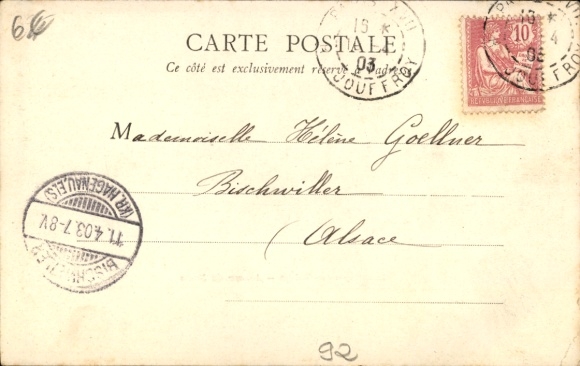 6€
CARTE POSTALE
Ce côté est exclusivement réservé à l'adresse
03
JOUFFROY
10
RÉPUBLIQUE FRANÇAISE
4
03
JOUFFROY
Mademoiselle Hélène Goellner
Bischwiller
(Alsace
BISCHWEILER
11.4.03.7-8V.
(KR. HAGENAU, ELS)
92